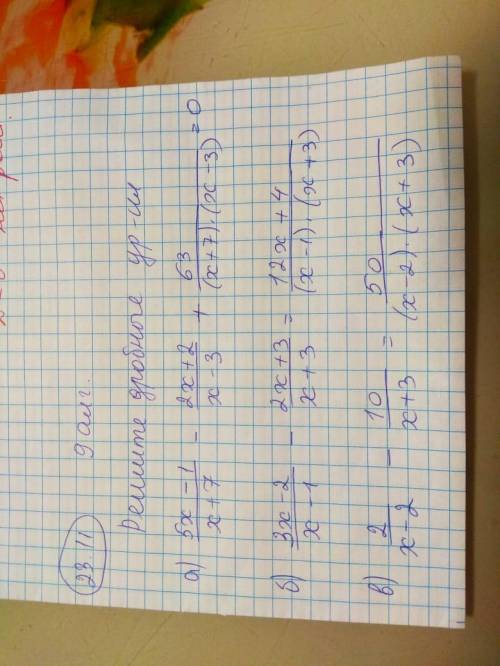 23.11 9 алг.
Решите дробные ур-ия
а) (5x-1)/(x+7) - (2x+2)/(x-3) + 63/((x+7)·(x-3)) = 0
б) (3x-2)/(x-1) - (2x+3)/(x+3) = (12x+4)/((x-1)·(x+3))
в) 2/(x-2) - 10/(x+3) = 50/((x-2)·(x+3))